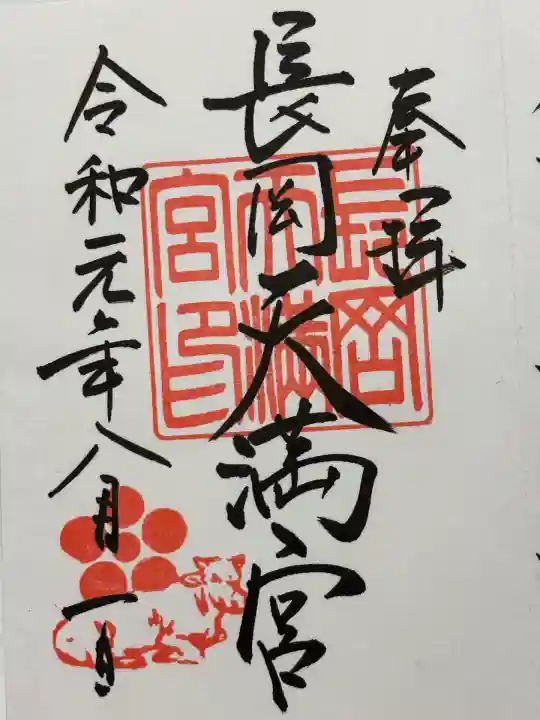 奉拝
長岡天満宮
長岡
天満
宮印
令和元年八月一日